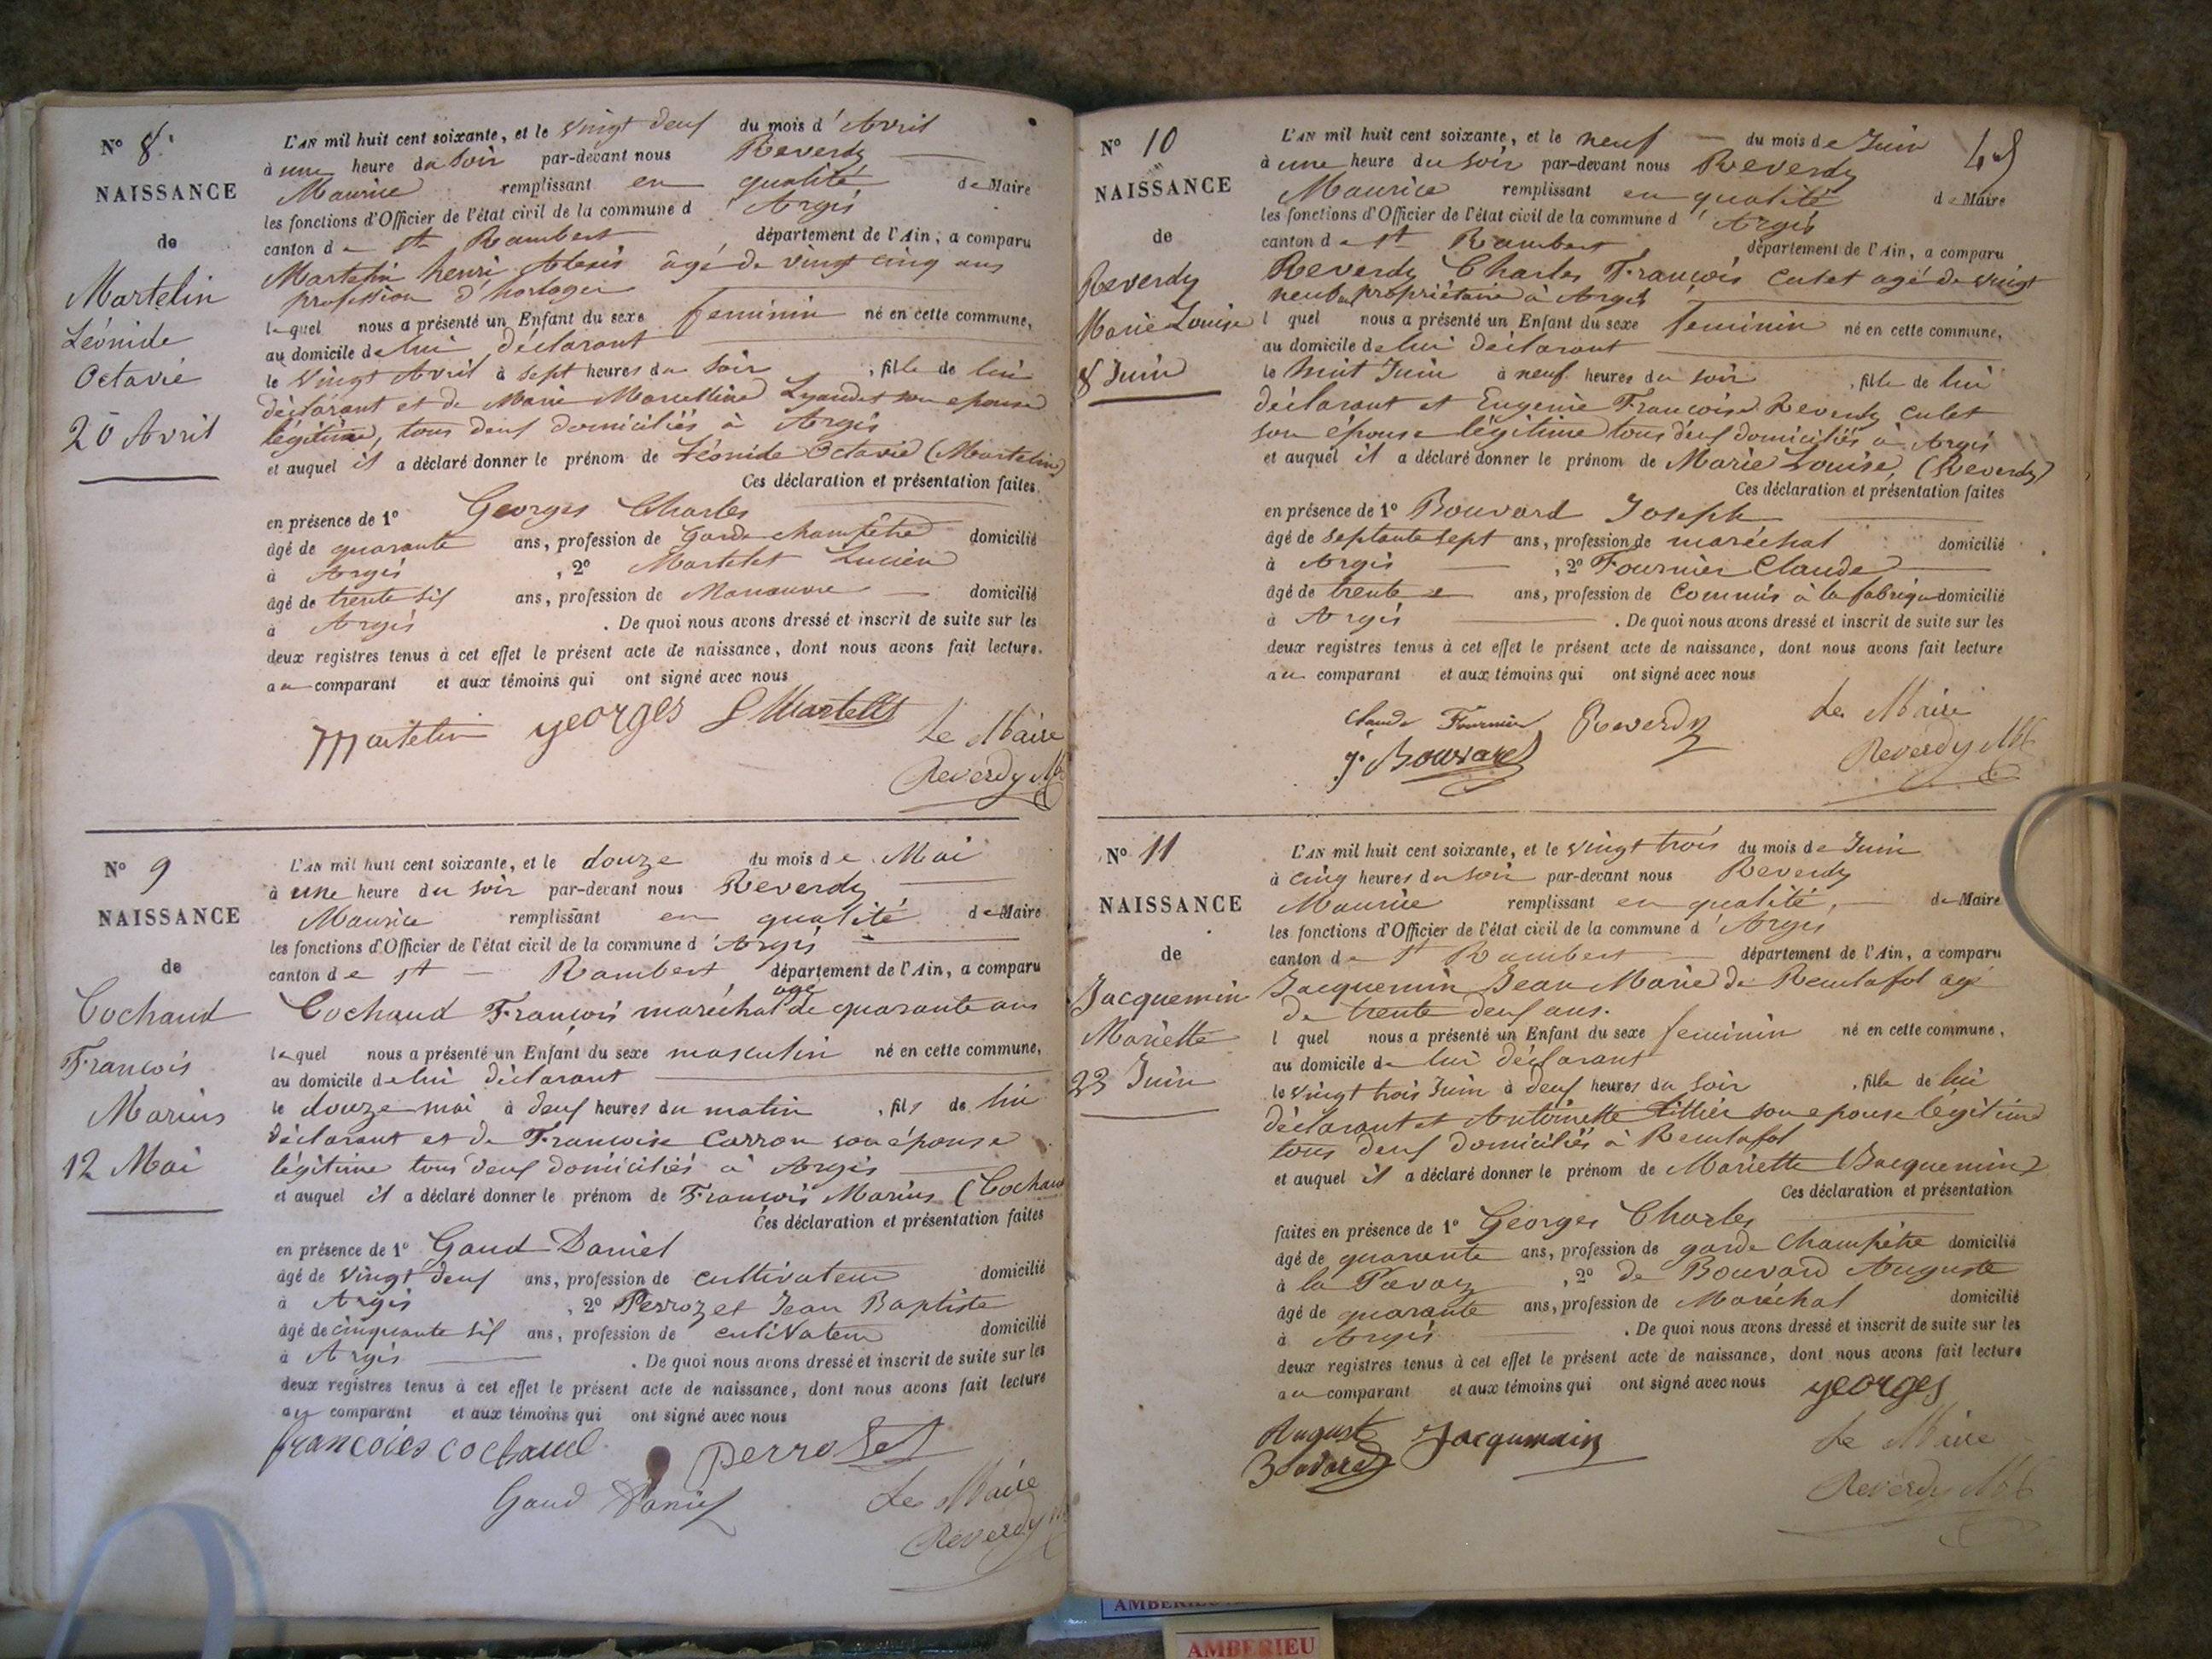 N° 8.
NAISSANCE
de
Martelin
Léonide
Octavie
20 Avril
L'AN mil huit cent soixante, et le vingt deux du mois d'Avril
à une heure du soir par-devant nous Reverdy
Maurice remplissant en qualité de Maire
les fonctions d'Officier de l'état civil de la commune d'Argis
canton de St Rambert département de l'Ain, a comparu
Martelin henri Alexis âgé de vingt cinq ans
profession d'horloger
lequel nous a présenté un Enfant du sexe feminin né en cette commune,
au domicile de lui déclarant
le vingt Avril à sept heures du soir, fille de lui
déclarant et de Marie Marcelline son epouse
légitime, tous deux domiciliés à Argis
et auquel il a déclaré donner le prénom de Léonide Octavie (Martelin)
Ces déclaration et présentation faites
en présence de 1° Georges Charles
âgé de quarante ans, profession de Garde champêtre domicilié
à Argis, 2° Martelet Lucien
âgé de trente six ans, profession de Manœuvre domicilié
à Argis. De quoi nous avons dressé et inscrit de suite sur les
deux registres tenus à cet effet le présent acte de naissance, dont nous avons fait lecture.
au comparant et aux témoins qui ont signé avec nous
Martelin georges L Martelet Le Maire
Reverdy
N° 9
NAISSANCE
de
Cochaud
François
Marius
12 Mai
L'AN mil huit cent soixante, et le douze du mois de Mai
à une heure du soir par-devant nous Reverdy
Maurice remplissant en qualité de Maire
les fonctions d'Officier de l'état civil de la commune d'Argis
canton de St Rambert département de l'Ain, a comparu
Cochaud François maréchal age de quarante ans
lequel nous a présenté un Enfant du sexe masculin né en cette commune,
au domicile de lui déclarant
le douze mai à deux heures du matin, fils de lui
déclarant et de Francoise Carron son épouse
légitime tous deux domiciliés à Argis
et auquel il a déclaré donner le prénom de François Marius (Cochaud
Ces déclaration et présentation faites
en présence de 1° Gaud Daniel
âgé de vingt deux ans, profession de cultivateur domicilié
à Argis, 2° Perrozet Jean Baptiste
âgé de cinquante six ans, profession de cultivateur domicilié
à Argis. De quoi nous avons dressé et inscrit de suite sur les
deux registres tenus à cet effet le présent acte de naissance, dont nous avons fait lecture
au comparant et aux témoins qui ont signé avec nous
francoies cochaud perroset
Gaud Daniel Le Maire
Reverdy
N° 10
NAISSANCE
de
Reverdy
Marie Louise
8 Juin
L'AN mil huit cent soixante, et le neuf du mois de Juin
à une heure du soir par-devant nous Reverdy
Maurice remplissant en qualité de Maire
les fonctions d'Officier de l'état civil de la commune d'Argis
canton de St Rambert département de l'Ain, a comparu
Reverdy Charles François Culet agé de vingt
neuf propriétaire à Argis
l quel nous a présenté un Enfant du sexe feminin né en cette commune,
au domicile de lui déclarant
le huit Juin à neuf heures du soir, fille de lui
déclarant et Eugenie Françoise Reverdy Culet
son épouse légitime tous deux domiciliés à Argis
et auquel il a déclaré donner le prénom de Marie Louise, (Reverdy)
Ces déclaration et présentation faites
en présence de 1° Bouvard Joseph
âgé de septante sept ans, profession de maréchal domicilié
à Argis, 2° Fournier Claude
âgé de trente ans, profession de Commis à la fabrique domicilié
à Argis. De quoi nous avons dressé et inscrit de suite sur les
deux registres tenus à cet effet le présent acte de naissance, dont nous avons fait lecture
au comparant et aux témoins qui ont signé avec nous
Claude Fournier Reverdy Le Maire
J. Bouvard Reverdy
N° 11
NAISSANCE
de
Jacquemin
Mariette
23 Juin
L'AN mil huit cent soixante, et le vingt trois du mois de Juin
à cinq heures du soir par-devant nous Reverdy
Maurice remplissant en qualité, de Maire
les fonctions d'Officier de l'état civil de la commune d'Argis
canton de St Rambert département de l'Ain, a comparu
Jacquemin Jean Marie de Reculafol agé
de trente deux ans.
l quel nous a présenté un Enfant du sexe feminin né en cette commune,
au domicile de lui déclarant
le vingt trois Juin à deux heures du soir, fille de lui
déclarant et Antoinette son epouse légitime
tous deux domiciliés à Reculafol
et auquel il a déclaré donner le prénom de Mariette (Jacquemin)
Ces déclaration et présentation
faites en présence de 1° Georges Charles
âgé de quarante ans, profession de garde Champêtre domicilié
à la Pavaz, 2° de Bouvard Auguste
âgé de quarante ans, profession de Maréchal domicilié
à Argis. De quoi nous avons dressé et inscrit de suite sur les
deux registres tenus à cet effet le présent acte de naissance, dont nous avons fait lecture
au comparant et aux témoins qui ont signé avec nous georges
Auguste Jacqumain Le Maire
Reverdy
AMBERIEU